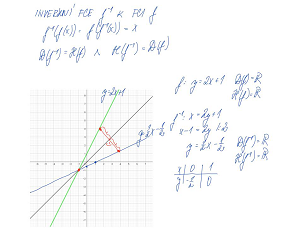 INVERZNÍ FCE f⁻¹ K FCI f
f⁻¹(f(x)) = f(f⁻¹(x)) = x
D(f⁻¹) = H(f) ∧ H(f⁻¹) = D(f)
y=2x+1
f: y = 2x+1 D(f)=ℝ
H(f)=ℝ
f⁻¹: x = 2y+1
x-1 = 2y /:2
y = ½x - ½ D(f⁻¹)=ℝ
H(f⁻¹)=ℝ
x | 0 | 1
y | -½ | 0